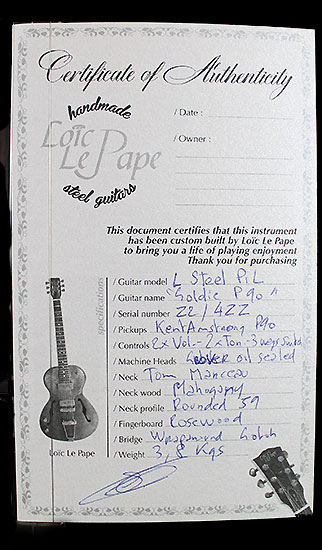 Certificate of Authenticity
handmade
Loïc
Le Pape
steel guitars
/ Date :
/ Owner :
This document certifies that this instrument
has been custom built by Loïc Le Pape
to bring you a life of playing enjoyment
Thank you for purchasing
specifications
/ Guitar model L Steel PiL
/ Guitar name "Goldie P90"
/ Serial number 22 / 422
/ Pickups Kent Armstrong P90
/ Controls 2x Vol - 2x Ton - 3 ways
/ Machine Heads oil sealed
/ Neck Tom Marceau
/ Neck wood Mahogany
/ Neck profile Rounded 59
/ Fingerboard Rosewood
/ Bridge Wraparound
/ Weight 3, Kgs
Loïc Le Pape